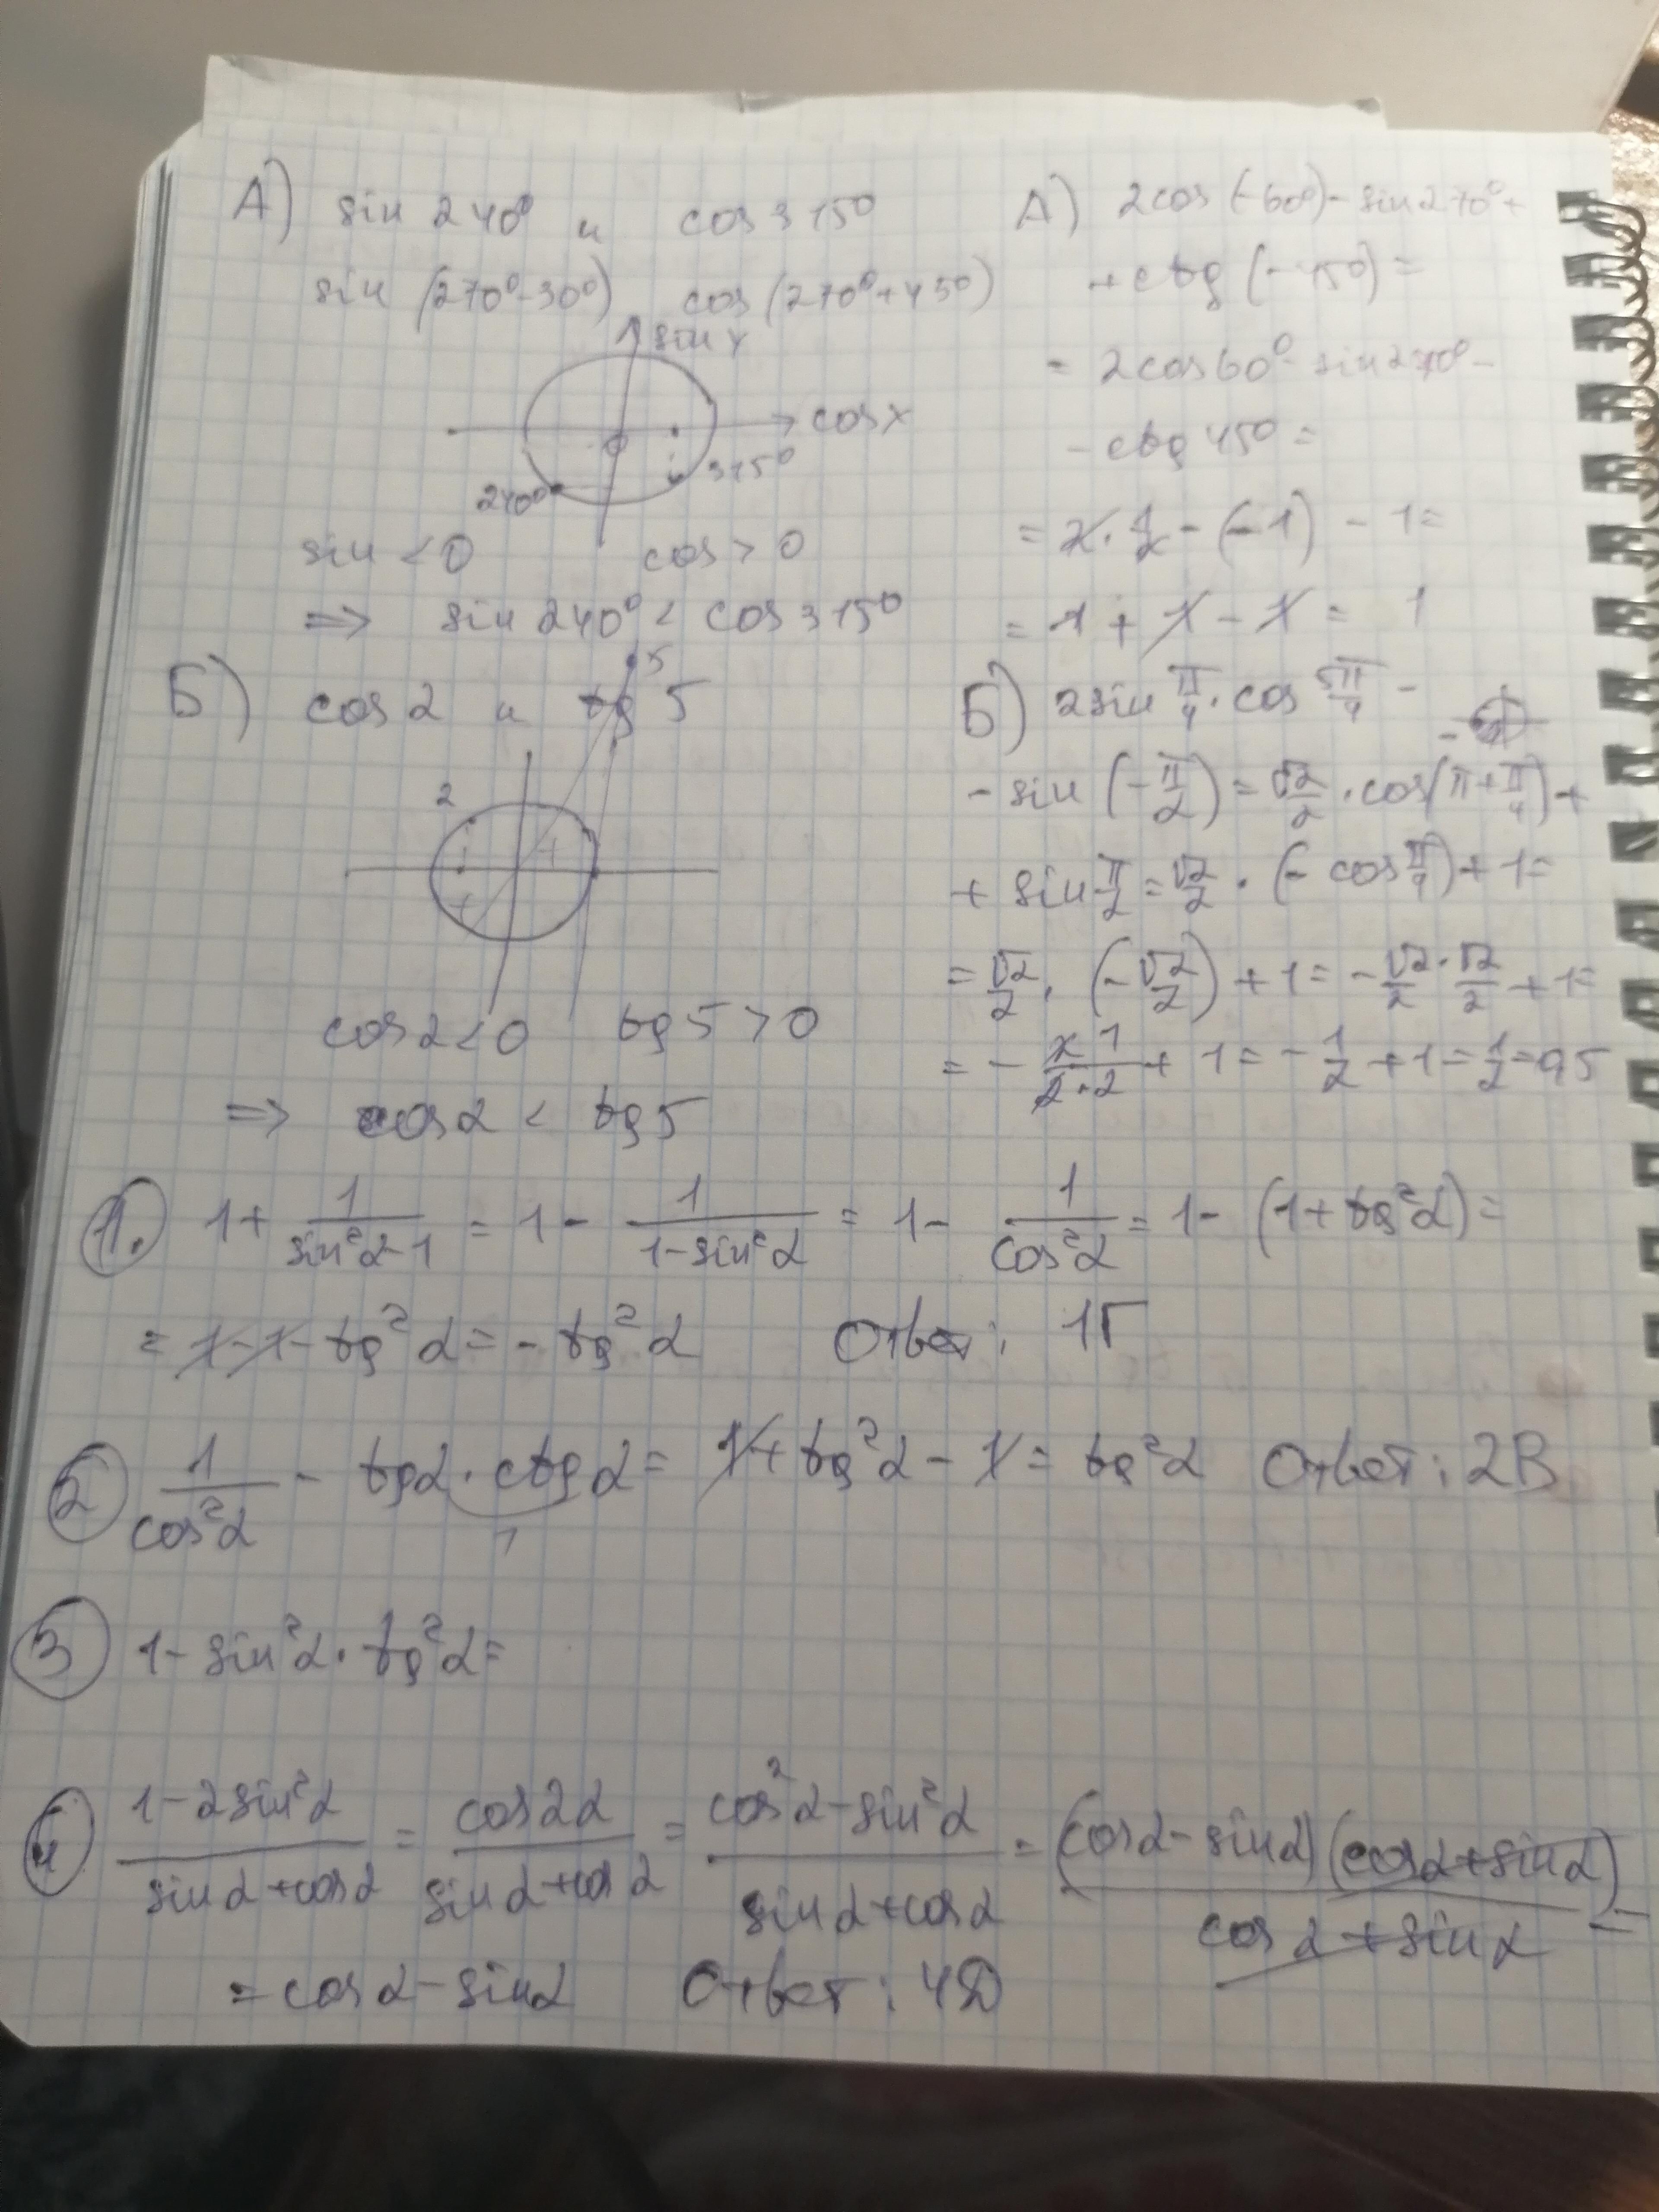 А) sin 240° и cos 315°
sin (270°-30°) cos (270°+45°)
sin y
cos x
0
240°
315°
sin < 0 cos > 0
⇒ sin 240° < cos 315°
Б) cos 2 и tg 5
5
2
+
+
cos 2 < 0 tg 5 > 0
⇒ cos 2 < tg 5
А) 2cos (-60°) - sin 270° +
+ ctg (-45°) =
= 2cos 60° - sin 270° -
- ctg 45° =
= 2 · 1/2 - (-1) - 1 =
= 1 + 1 - 1 = 1
Б) 2sin π/4 · cos 5π/4 -
- sin (-π/2) = √2/2 · cos(π + π/4) +
+ sin π/2 = √2/2 · (- cos π/4) + 1 =
= √2/2 · (-√2/2) + 1 = -√2/2 · √2/2 + 1 =
= - 2 1/(2·2) + 1 = - 1/2 + 1 = 1/2 = 0,5
1. 1 + 1/(sin²α-1) = 1 - 1/(1-sin²α) = 1 - 1/cos²α = 1 - (1+tg²α) =
= 1 - 1 - tg²α = - tg²α Ответ: 1Г
2 1/cos²α - tgα · ctgα = 1 + tg²α - 1 = tg²α Ответ: 2В
1
3 1 - sin²α · tg²α =
4 (1-2sin²α)/(sinα+cosα) = cos2α/(sinα+cosα) = (cos²α-sin²α)/(sinα+cosα) = (cosα-sinα)(cosα+sinα)/(cosα+sinα) =
= cosα - sinα Ответ: 4Д